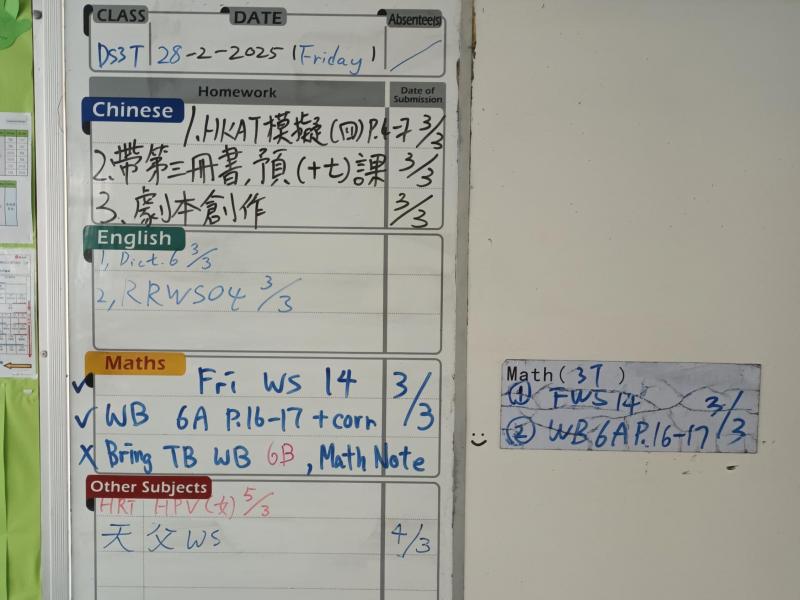 CLASS DATE Absentee(s)
DS3T 28-2-2025 (Friday) /
Homework Date of Submission
Chinese
1. HKAT模擬(四)P.4-7 3/3
2. 帶第三冊書,預(十七)課 3/3
3. 劇本創作 3/3
English
1, Dict. 6 3/3
2, RRWS04 3/3
Maths
✓ Fri WS 14 3/3
✓ WB 6A P.16-17 + corr
X Bring TB WB 6B, Math Note
Other Subjects
HRT HPV(女) 5/3
天父 WS 4/3
Math( 3T )
① FWS 14 3/3
② WB 6A P.16-17